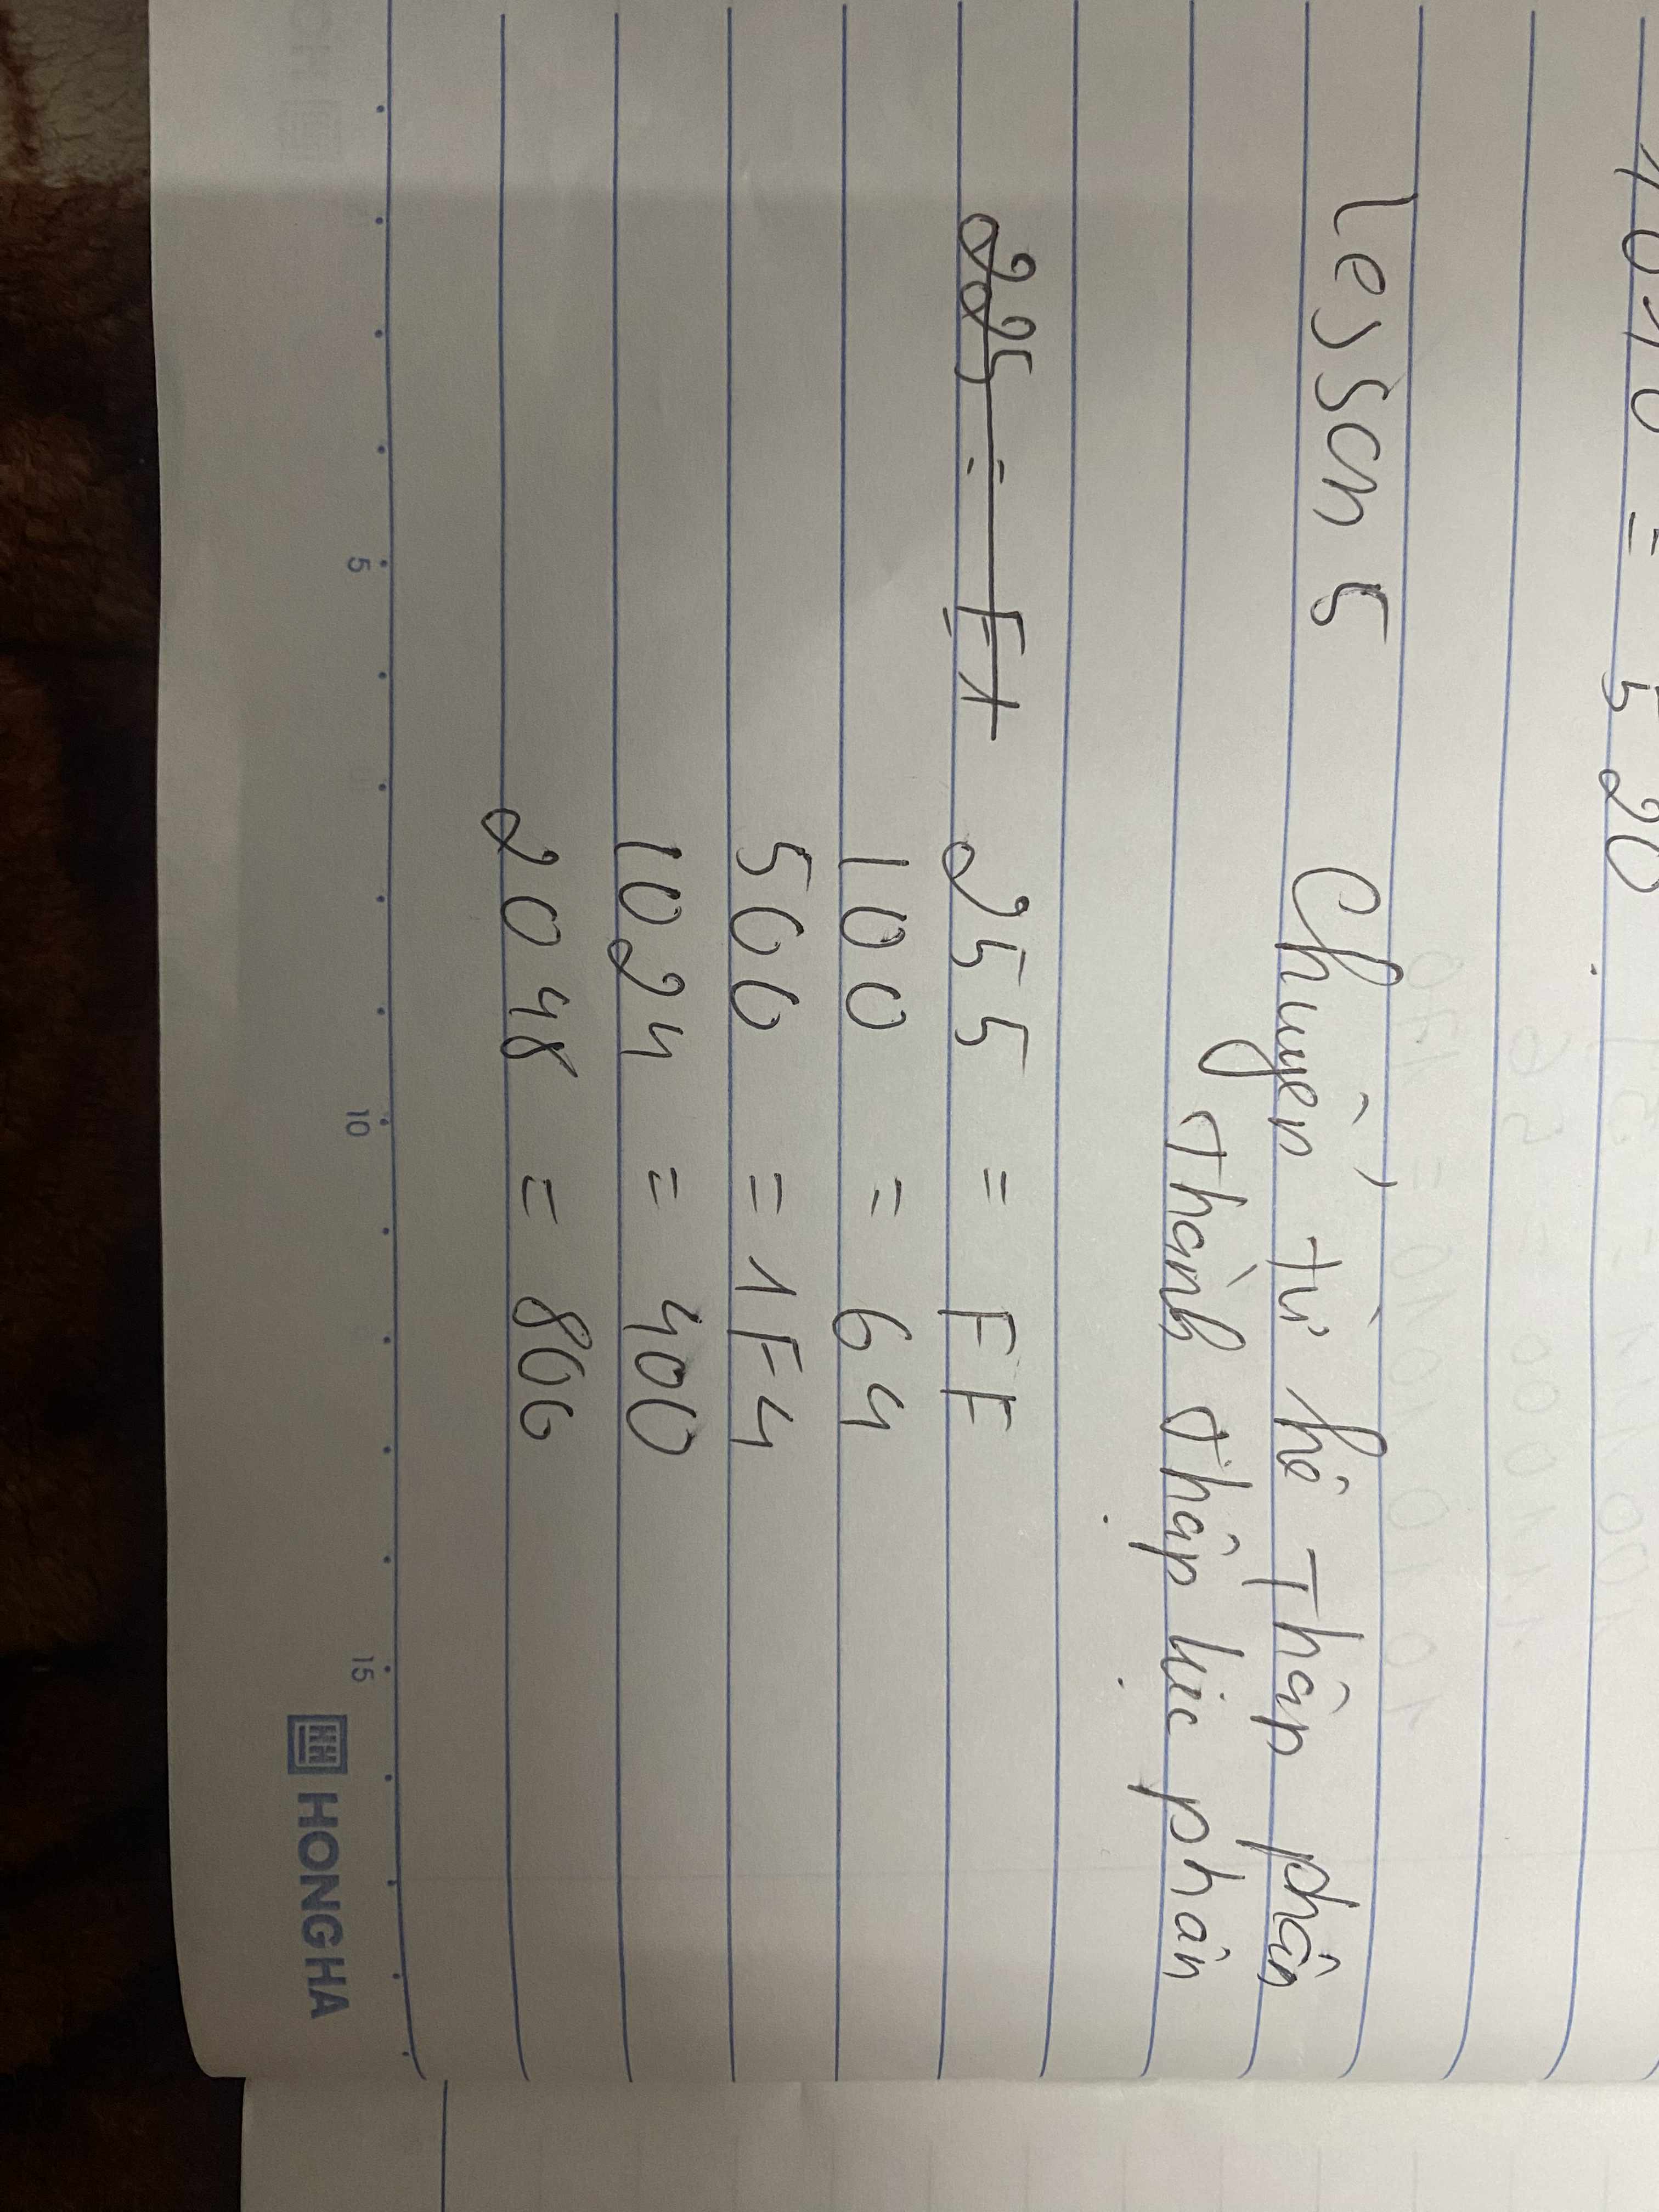 1010 = 5 20
Lesson 5 Chuyển từ hệ Thập phân
Thành thập lục phân
225 = E1 255 = FF
100 = 64
500 = 1F4
1024 = 400
2048 = 800
5 10 15
HONG HA